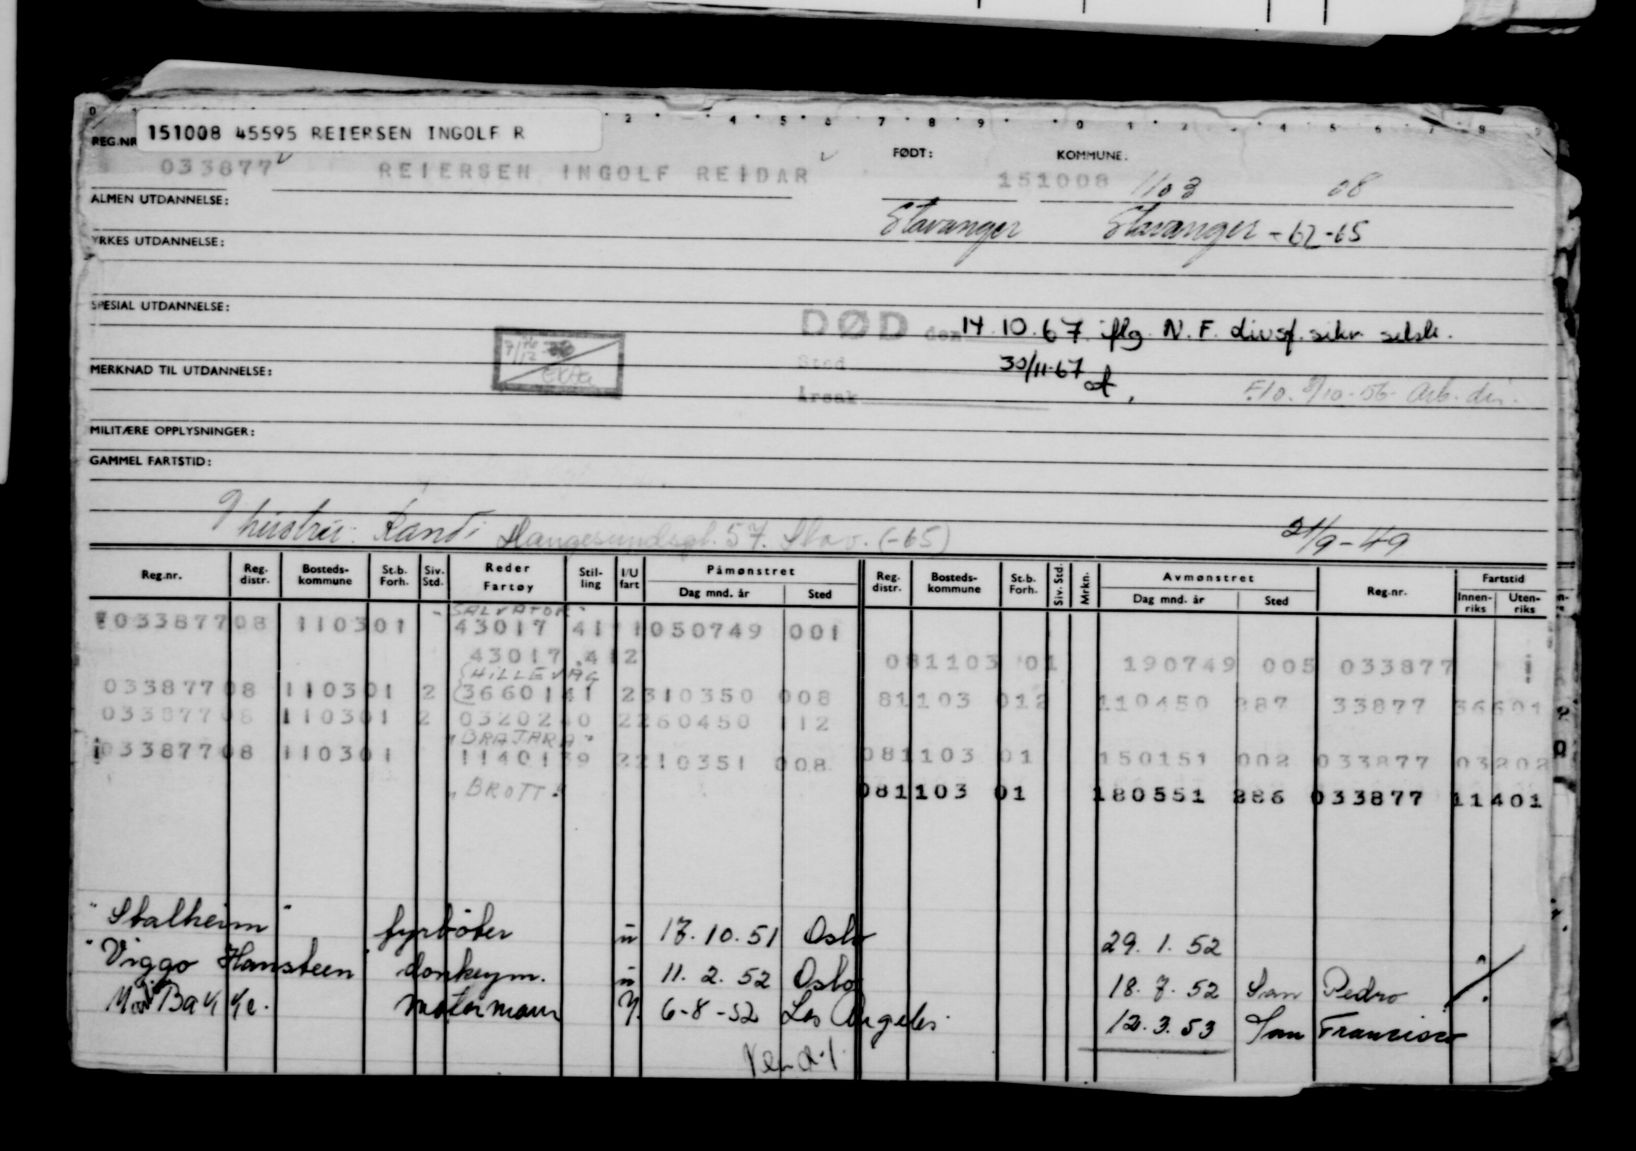 151008 45595 REIERSEN INGOLF R
REG.NR
033877 REIERSEN INGOLF REIDAR
FØDT: KOMMUNE.
151008 1103 08
ALMEN UTDANNELSE:
Stavanger Stavanger - 62-65
YRKES UTDANNELSE:
SPESIAL UTDANNELSE:
DØD den 14.10.67 iflg. N.F.
Sted 30/11-67
MERKNAD TIL UTDANNELSE:
Årsak
MILITÆRE OPPLYSNINGER:
GAMMEL FARTSTID:
hustru: Randi Haugesundsgt. 57. Stav. (-65) 21/9-49
Reg.nr. Reg. distr. Bosteds- kommune St.b. Forh. Siv. Std. Reder Fartøy Stil- ling I/U fart Påmønstret Dag mnd. år Sted Reg. distr. Bosteds- kommune St.b. Forh. Siv. Std. Mrkn. Avmønstret Dag mnd. år Sted Reg.nr. Fartstid Innen- riks Uten- riks
"SALVATOR"
033877 08 1103 01 43017 41 1 050749 001
43017 41 2 081103 01 190749 005 033877
HILLEVÅG
033877 08 1103 01 2 36601 41 2 310350 008 81103 012 110450 287 33877 36601
033877 08 1103 01 2 03202 40 2 260450 112
"BRAJARA"
033877 08 1103 01 11401 39 2 210351 008 081103 01 150151 002 033877 03202
"BROTT" 081103 01 180551 286 033877 11401
"Stalheim" fyrbøter u 17.10.51 Oslo 29.1.52
"Viggo Hansteen" donkeym. u 11.2.52 Oslo 18.7.52 San Pedro
motormann 6-8-52 Los Angeles. 12.3.53 San Francisco
Vend!